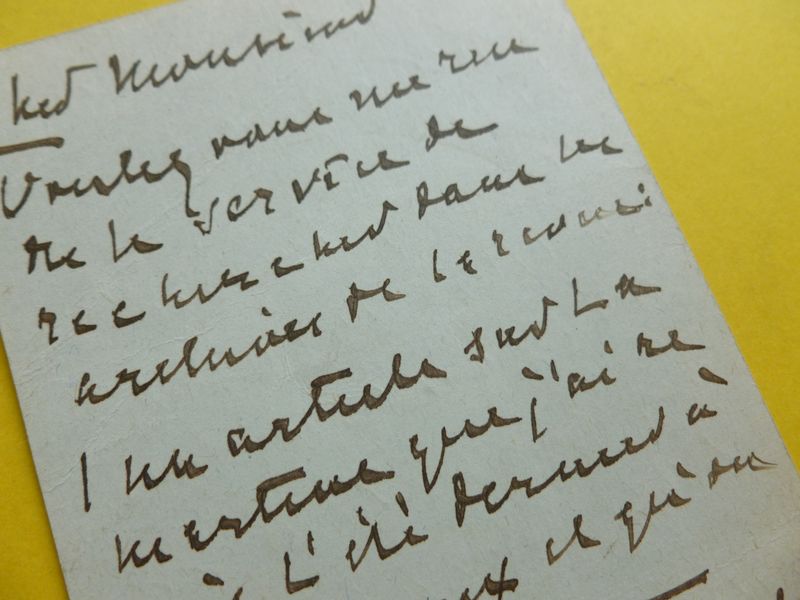 Monsieur
Voulez vous me ren
dre le service de
rechercher dans les
archives de
un article sur La
que j'ai re
à l'été dernier à
et qu'on